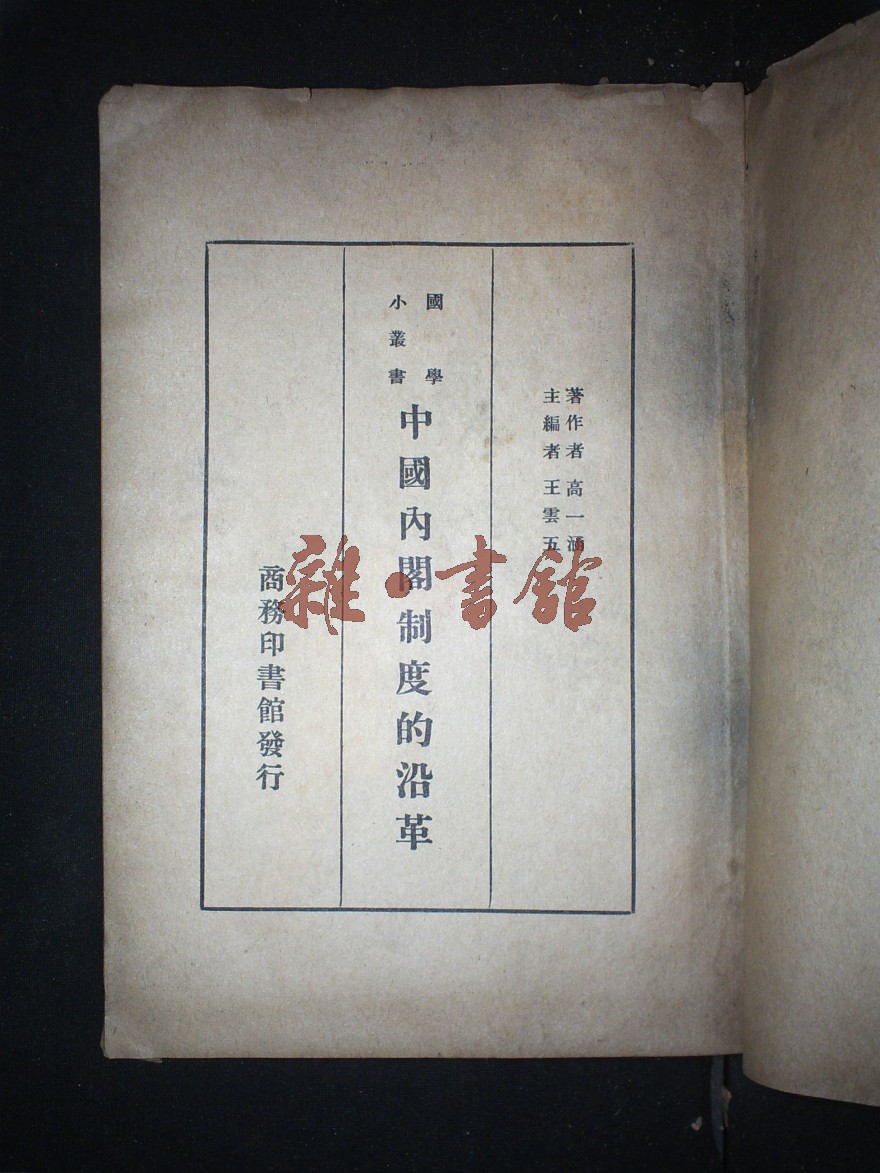 著作者 高一涵
主編者 王雲五
國學
小叢書
中國內閣制度的沿革
商務印書館發行
雜·書館